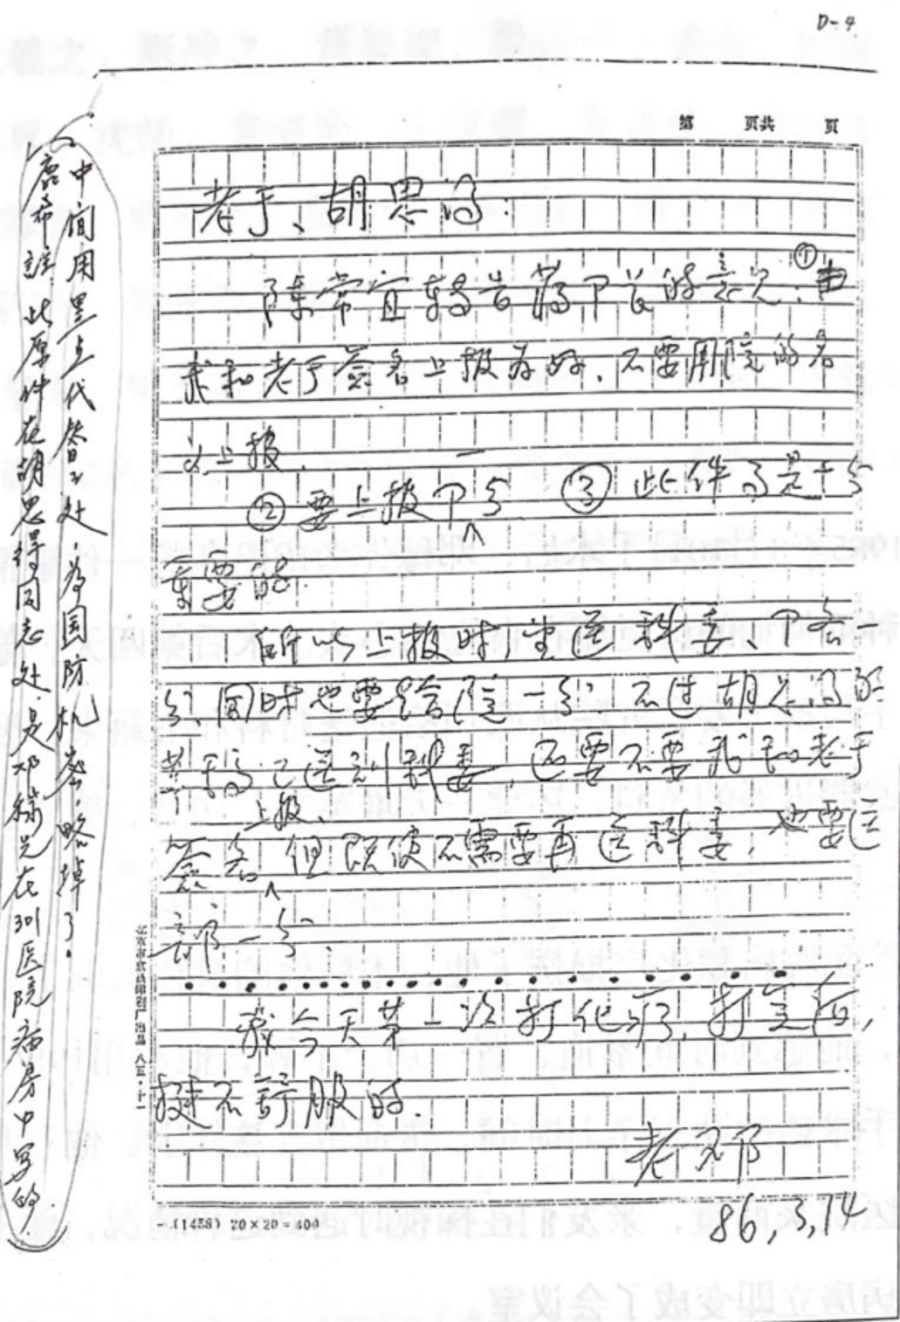 D-4
第 页共 页
老于、胡思得
陈常宜转告蒋中首的意见:①由
我和老于签名上报为好,不要用院的名
义上报。
②要上报 ③此件
重要的
所以上报时先送科委
同时也要给院一 不过胡思得的
已送到科委 还要不要我和老于
签名上报、但既使不需要再送科委,也要送
部一
我今天第一次打化疗,打完后,
挺不舒服的。
老邓
86,3,14
(1458) 20×20=400
(中间用黑点代替之处为国防机密,略掉了。
鹿希 注 此原件在胡思得同志处是邓稼先在301医院病房中写的